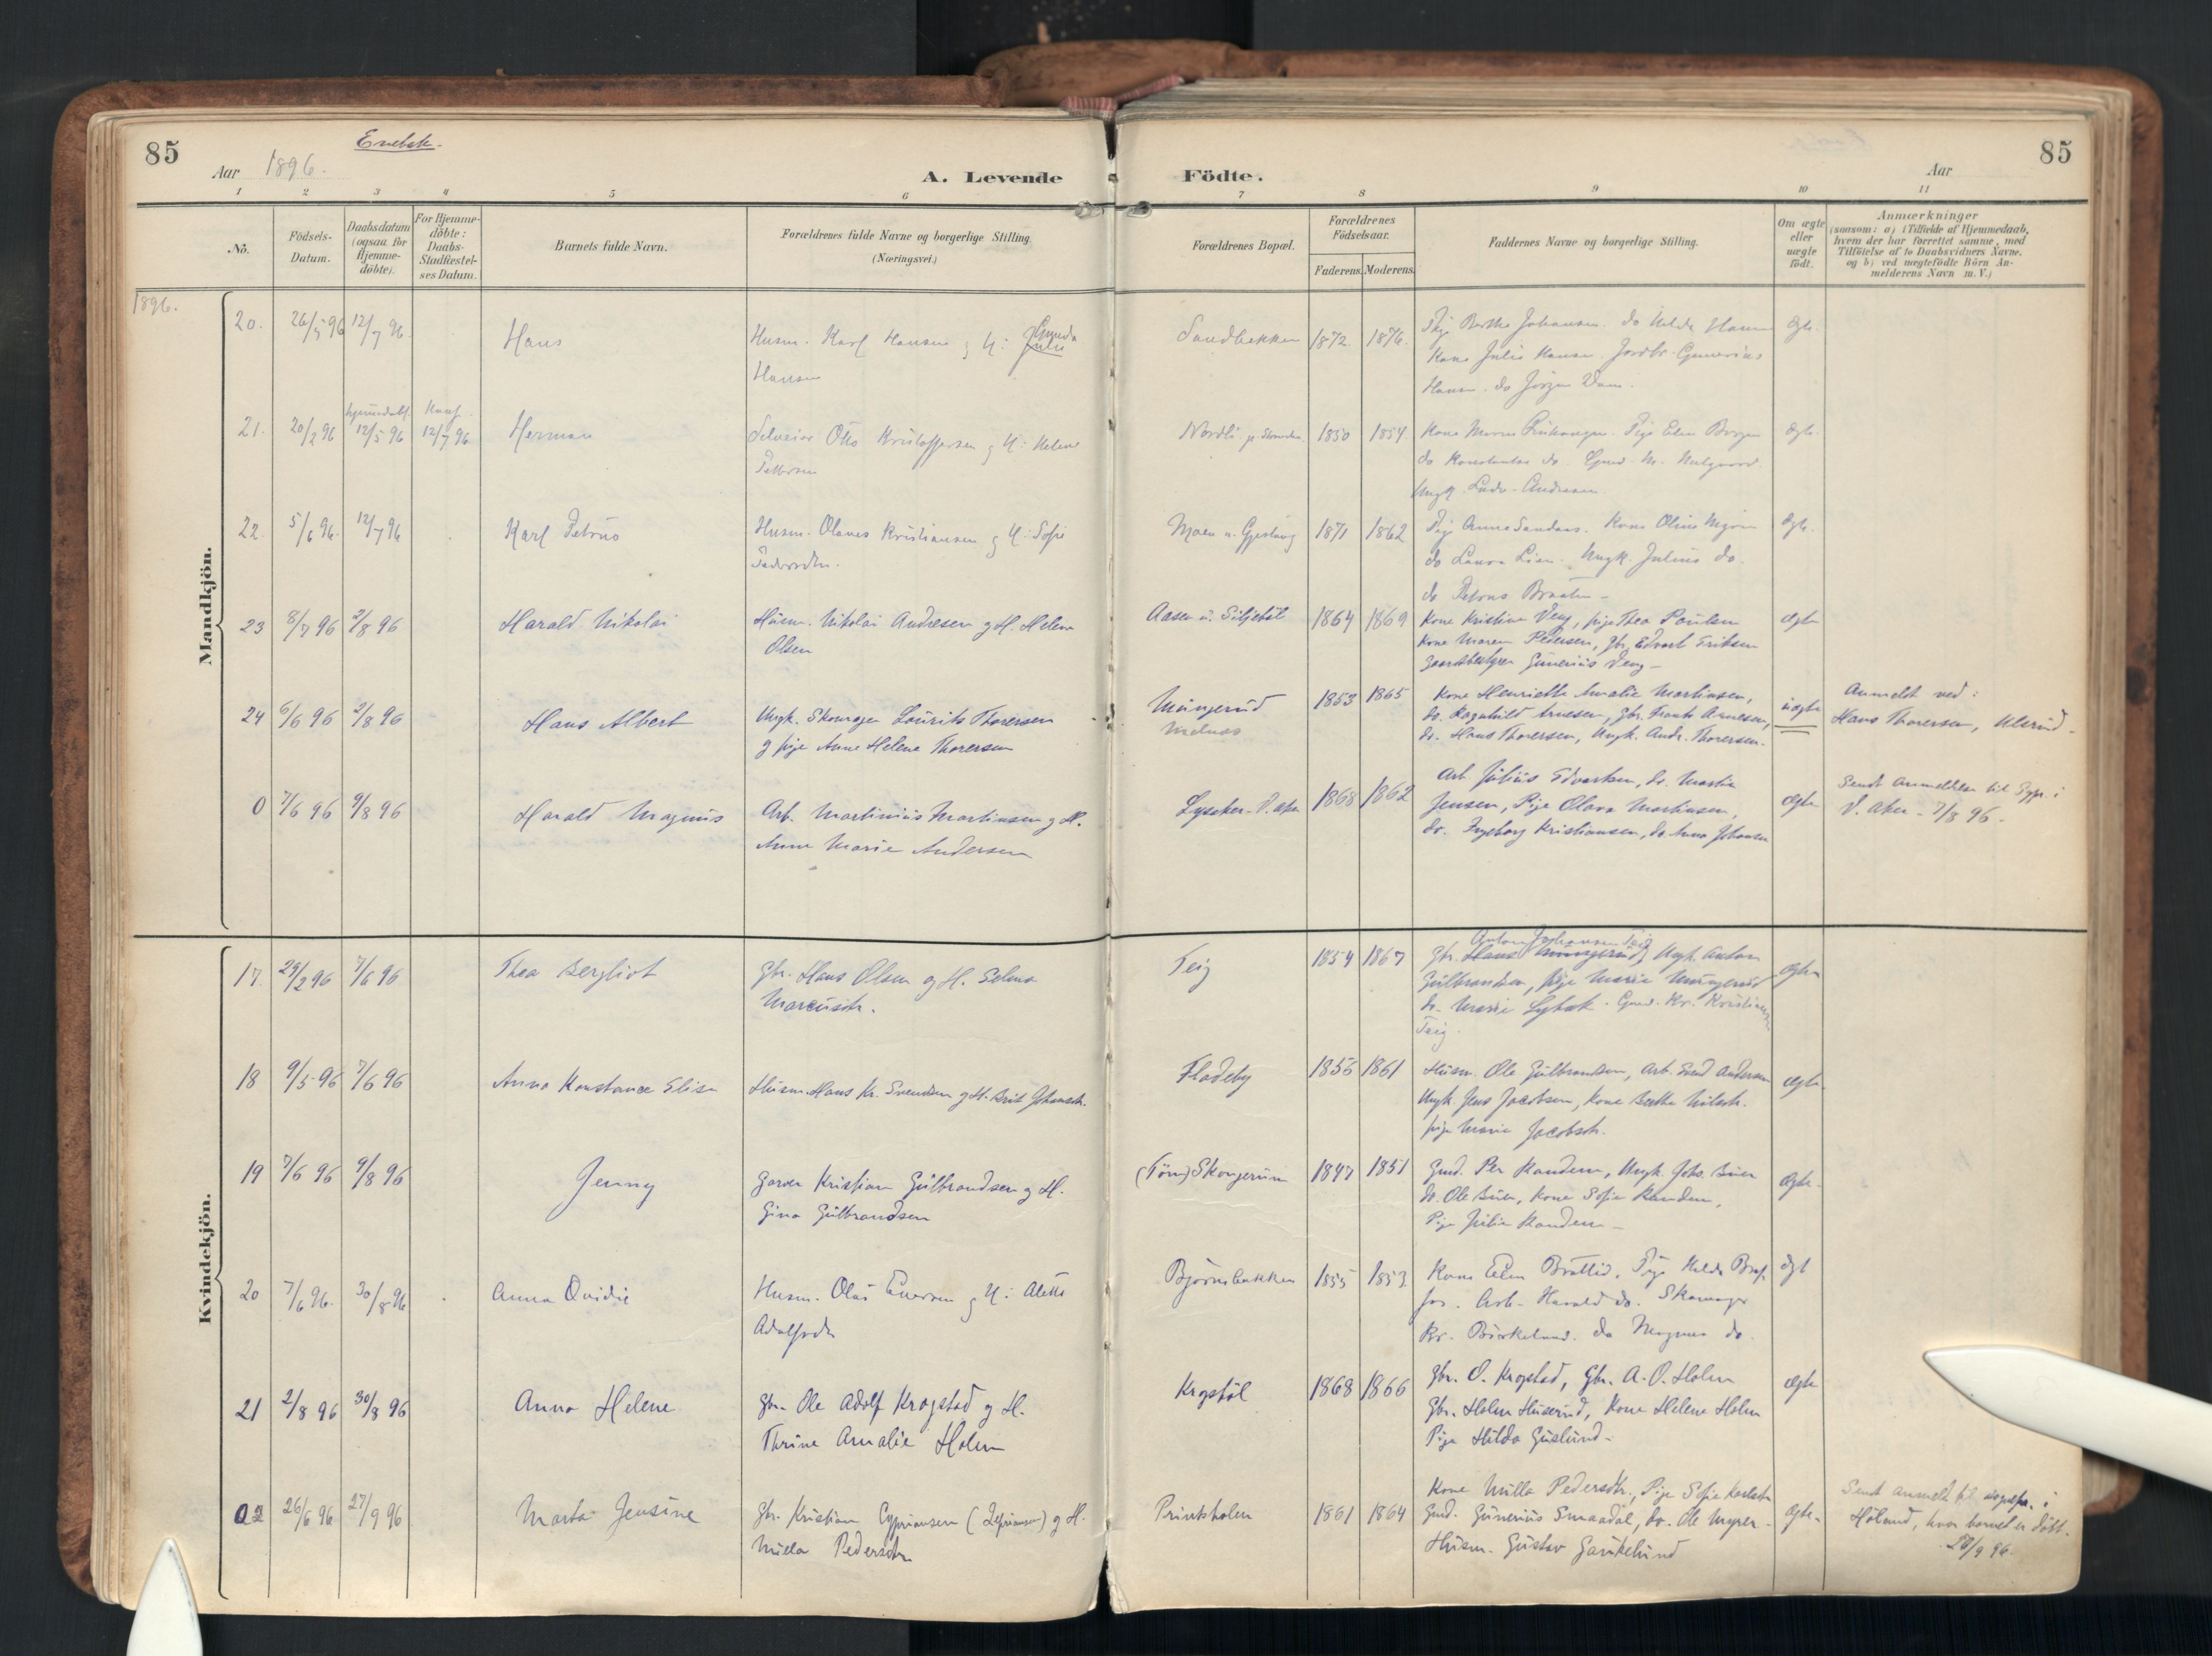 85
Enebak.
Aar 1896.
A. Levende
1 2 3 4 5 6
Nö.
Födsels-
Datum.
Daabsdatum
(ogsaa for
Hjemme-
döbte).
For Hjemme-
döbte:
Daabs-
Stadfæstel-
ses Datum.
Barnets fulde Navn.
Forældrenes fulde Navne og borgerlige Stilling.
(Næringsvei.)
Födte.
85
Aar
7 8 9 10 11
Forældrenes Bopæl.
Forældrenes
Födselsaar.
Faderens. Moderens.
Faddernes Navne og borgerlige Stilling.
Om ægte
eller
uægte
födt.
Anmærkninger
(saasom: a) i Tilfælde af Hjemmedaab,
hvem der har forrettet samme, med
Tilföielse af to Daabsvidners Navne.
og b) ved uegtefödte Börn An-
melderens Navn m.V.)
1896.
Mandkjön.
20. 26/5 96 12/7 96. Hans
Husm. Karl Hansen g H:
Julie
Hansen
Sandbakken 1872. 1876.
Pige Berthe Johansen. do Hilda Hansen
Kone Julie Hansen. Jordbr. Gunerius
Hansen. do Jörgen Dam.
ægte.
21. 20/2 96 12/5 96 12/7 96 Herman
Otto Kristoffersen g H: Helene
Pettersen
Nordli 1850 1854
Kone Maren
do Konstanse do.
Ungk. Ludv. Andresen
ægte.
22. 5/6 96. 12/7 96 Karl Petrus
Husm. Olaves Kristiansen g H: Sofie
Pedersdtr.
Moen u. Gjestang 1871 1862
Pige Anna Sandaas. Kone Oline
do Laura Lien. Ungk. Julius do.
do Petrus Braaten
ægte.
23 8/7 96 2/8 96 Harald Nikolai
Husm. Nikolai Andresen g H. Helene
Olsen
Aasen u. Siljeböl 1864 1869
Kone Kristine Veng, pige Thea Poulsen
Kone Maren Pedersen, Gbr. Edvart Eriksen
Gaardbestyrer Gunerius Veng
ægte
24 6/6 96 2/8 96 Hans Albert
Ungk. Skomager Laurits Thoresen
g pige Anne Helene Thoresen
Mungerud 1853 1865
Kone Henriette Amalie Martinsen,
do. Ragnhild Arnesen, Gbr. Frants Arnesen,
do. Hans Thoresen, Ungk. Andr. Thoresen.
uægte
Anmeldt ved:
Hans Thoresen, Ulsrud.
0 7/6 96 9/8 96 Harald Magnus
Arb. Martinius Martinsen g H.
Anne Marie Andersen
Lysaker V. Aker 1868 1862
Arb. Julius Edvartsen, do. Martin
Jensen, Pige Olava Martinsen,
do. Ingeborg Kristiansen, do. Anna Johansen
ægte
Sendt Anmeldelse til Sgpr. i
V. Aker - 7/8 96.
Kvindekjön.
17. 29/2 96 7/6 96 Thea Bergliot
Gbr. Hans Olsen g H. Selma
Marcusdtr.
Teig 1854 1867
Anton Johansen Teig
Gbr. Hans Mungerud, Ungk. Anton
Gulbrandsen, pige Marie Mungerud
do. Marie Lybæk. Gmd. Kr. Kristiansen
Teig.
ægte
18 9/5 96 7/6 96 Anna Konstance Elise
Husm. Hans Kr. Svendsen g H. Berit Johansdtr.
Fladeby 1856 1861
Husm. Ole Gulbrandsen, Arb. Svend Andersen
Ungk. Jens Jacobsen, Kone Berthe Nilsdtr.
pige Marie Jacobsdtr.
ægte
19 7/6 96 9/8 96 Jenny
Garver Kristian Gulbrandsen g H.
Gina Gulbrandsen
Skongerum 1847 1851
Gmd. Per Randem, Ungk. Johs. Buer
do. Ole Buer, Kone Sofie Randem,
Pige Julie Randem
ægte.
20 7/6 96. 30/8 96 Anna Ovidie
Husm. Olaus Evensen g H: Alette
Adolfsdtr
Björnebakken 1855 1853
Kone Ellen Bråttlid. Pige Hilda
Arb. Harald do. Skomager
Kr. Birkelund. do Magnus do.
ægt
21 2/8 96 30/8 96 Anna Helene
Gbr. Ole Adolf Krogstad g H.
Thrine Amalie Holm
Krgstöl 1868 1866
Gbr. O. Krogstad, Gbr. A. O. Holm
Gbr. Holm Huserud, Kone Helene Holm
Pige Hilda Guslund
ægte
0 26/6 96 27/9 96 Marta Jensine
Gbr. Kristian Cypriansen (Zefriansen) g H.
Milla Pedersdtr.
Printsholen 1861 1864
Kone Milla Pedersdtr., Pige Sofie
Gmd. Gunerius Smaadal, do. Ole Myrer
Husm. Gustav Garukelund
ægte.
Sendt anmeldt til sognepr. i
Höland, hvor barnet er födt.
28/9 96.